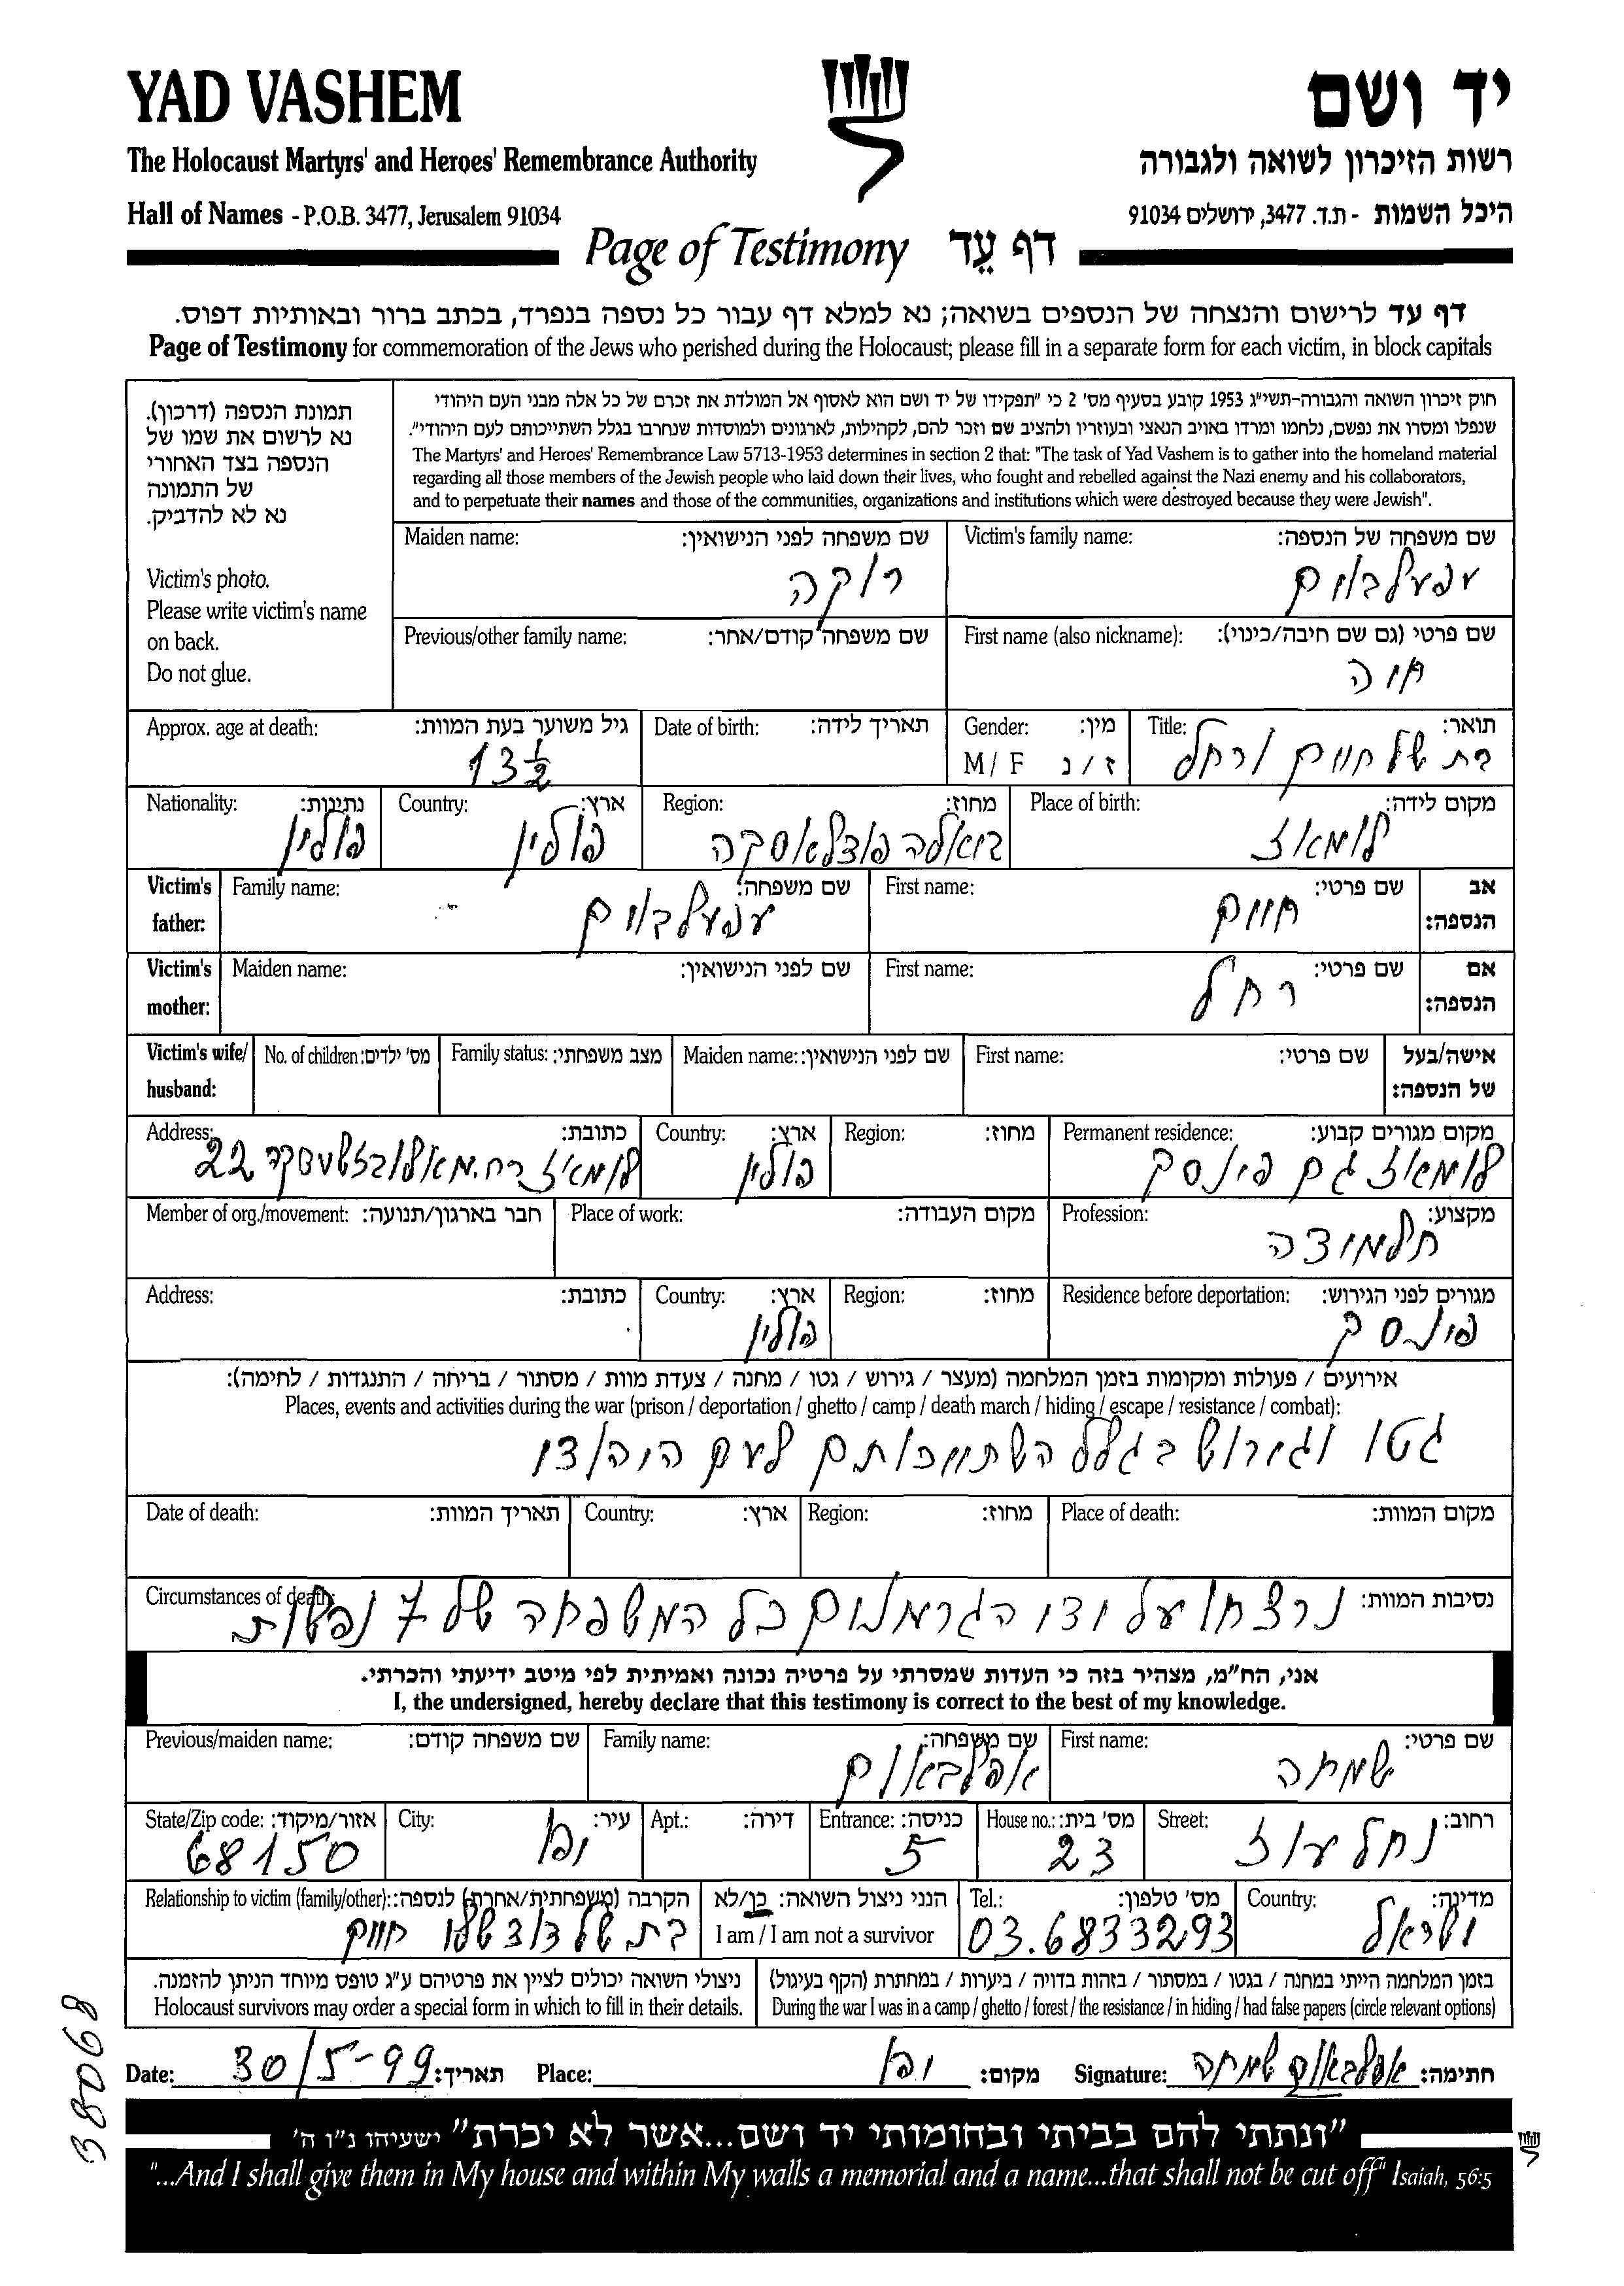 YAD VASHEM
יד ושם
The Holocaust Martyrs' and Heroes' Remembrance Authority
רשות הזיכרון לשואה ולגבורה
Hall of Names - P.O.B. 3477, Jerusalem 91034
היכל השמות - ת.ד. 3477, ירושלים 91034
Page of Testimony דף עֵד
דף עד לרישום והנצחה של הנספים בשואה; נא למלא דף עבור כל נספה בנפרד, בכתב ברור ובאותיות דפוס.
Page of Testimony for commemoration of the Jews who perished during the Holocaust; please fill in a separate form for each victim, in block capitals
תמונת הנספה (דרכון).
נא לרשום את שמו של
הנספה בצד האחורי
של התמונה
נא לא להדביק.
Victim's photo.
Please write victim's name
on back.
Do not glue.
חוק זיכרון השואה והגבורה-תשי"ג 1953 קובע בסעיף מס' 2 כי "תפקידו של יד ושם הוא לאסוף אל המולדת את זכרם של כל אלה מבני העם היהודי
שנפלו ומסרו את נפשם, נלחמו ומרדו באויב הנאצי ובעוזריו ולהציב שם וזכר להם, לקהילות, לארגונים ולמוסדות שנחרבו בגלל השתייכותם לעם היהודי".
The Martyrs' and Heroes' Remembrance Law 5713-1953 determines in section 2 that: "The task of Yad Vashem is to gather into the homeland material
regarding all those members of the Jewish people who laid down their lives, who fought and rebelled against the Nazi enemy and his collaborators,
and to perpetuate their names and those of the communities, organizations and institutions which were destroyed because they were Jewish".
Victim's family name: שם משפחה של הנספה:
עפעלבוים
Maiden name: שם משפחה לפני הנישואין:
רוקה
First name (also nickname): שם פרטי (גם שם חיבה/כינוי):
חוה
Previous/other family name: שם משפחה קודם/אחר:
Title: תואר:
בת של חיים ורחל
Gender: מין:
M / F ז / נ
Date of birth: תאריך לידה:
Approx. age at death: גיל משוער בעת המוות:
13 ½
Place of birth: מקום לידה:
לומאז
Region: מחוז:
ביאלה פודלאסקה
Country: ארץ:
פולין
Nationality: נתינות:
פולין
Victim's father: אב הנספה:
First name: שם פרטי:
חיים
Family name: שם משפחה:
עפעלבוים
Victim's mother: אם הנספה:
First name: שם פרטי:
רחל
Maiden name: שם לפני הנישואין:
Victim's wife/ husband: אישה/בעל של הנספה:
First name: שם פרטי:
Maiden name: שם לפני הנישואין:
Family status: מצב משפחתי:
No. of children: מס' ילדים:
Permanent residence: מקום מגורים קבוע:
לומאז גם פינסק
Region: מחוז:
Country: ארץ:
פולין
Address: כתובת:
לומאז רח. 22
Profession: מקצוע:
תלמידה
Place of work: מקום העבודה:
Member of org./movement: חבר בארגון/תנועה:
Residence before deportation: מגורים לפני הגירוש:
פינסק
Region: מחוז:
Country: ארץ:
פולין
Address: כתובת:
אירועים / פעולות ומקומות בזמן המלחמה (מעצר / גירוש / גטו / מחנה / צעדת מוות / מסתור / בריחה / התנגדות / לחימה):
Places, events and activities during the war (prison / deportation / ghetto / camp / death march / hiding / escape / resistance / combat):
גטו וגירוש בגלל השתייכותם לעם היהודי
Place of death: מקום המוות:
Region: מחוז:
Country: ארץ:
Date of death: תאריך המוות:
Circumstances of death: נסיבות המוות:
נרצחו על ידי הגרמנים כל המשפחה של 7 נפשות
אני, הח"מ, מצהיר בזה כי העדות שמסרתי על פרטיה נכונה ואמיתית לפי מיטב ידיעתי והכרתי.
I, the undersigned, hereby declare that this testimony is correct to the best of my knowledge.
First name: שם פרטי:
שמחה
Family name: שם משפחה:
אפלבאום
Previous/maiden name: שם משפחה קודם:
Street: רחוב:
נחל עוז
House no.: מס' בית:
23
Entrance: כניסה:
5
Apt.: דירה:
City: עיר:
יפו
State/Zip code: אזור/מיקוד:
68150
Country: מדינה:
ישראל
Tel.: מס' טלפון:
03.6833293
הנני ניצול השואה: כן/לא
I am / I am not a survivor
Relationship to victim (family/other): הקרבה (משפחתית/אחרת) לנספה:
בת של דוד שלי חיים
בזמן המלחמה הייתי במחנה / בגטו / במסתור / בזהות בדויה / ביערות / במחתרת (הקף בעיגול)
During the war I was in a camp / ghetto / forest / the resistance / in hiding / had false papers (circle relevant options)
ניצולי השואה יכולים לציין את פרטיהם ע"ג טופס מיוחד הניתן להזמנה.
Holocaust survivors may order a special form in which to fill in their details.
Date: 30/5-99 תאריך: Place: יפו מקום: Signature: אפלבאום שמחה חתימה:
38068
"ונתתי להם בביתי ובחומותי יד ושם...אשר לא יכרת" ישעיהו נ"ו ה'
"...And I shall give them in My house and within My walls a memorial and a name...that shall not be cut off" Isaiah, 56:5